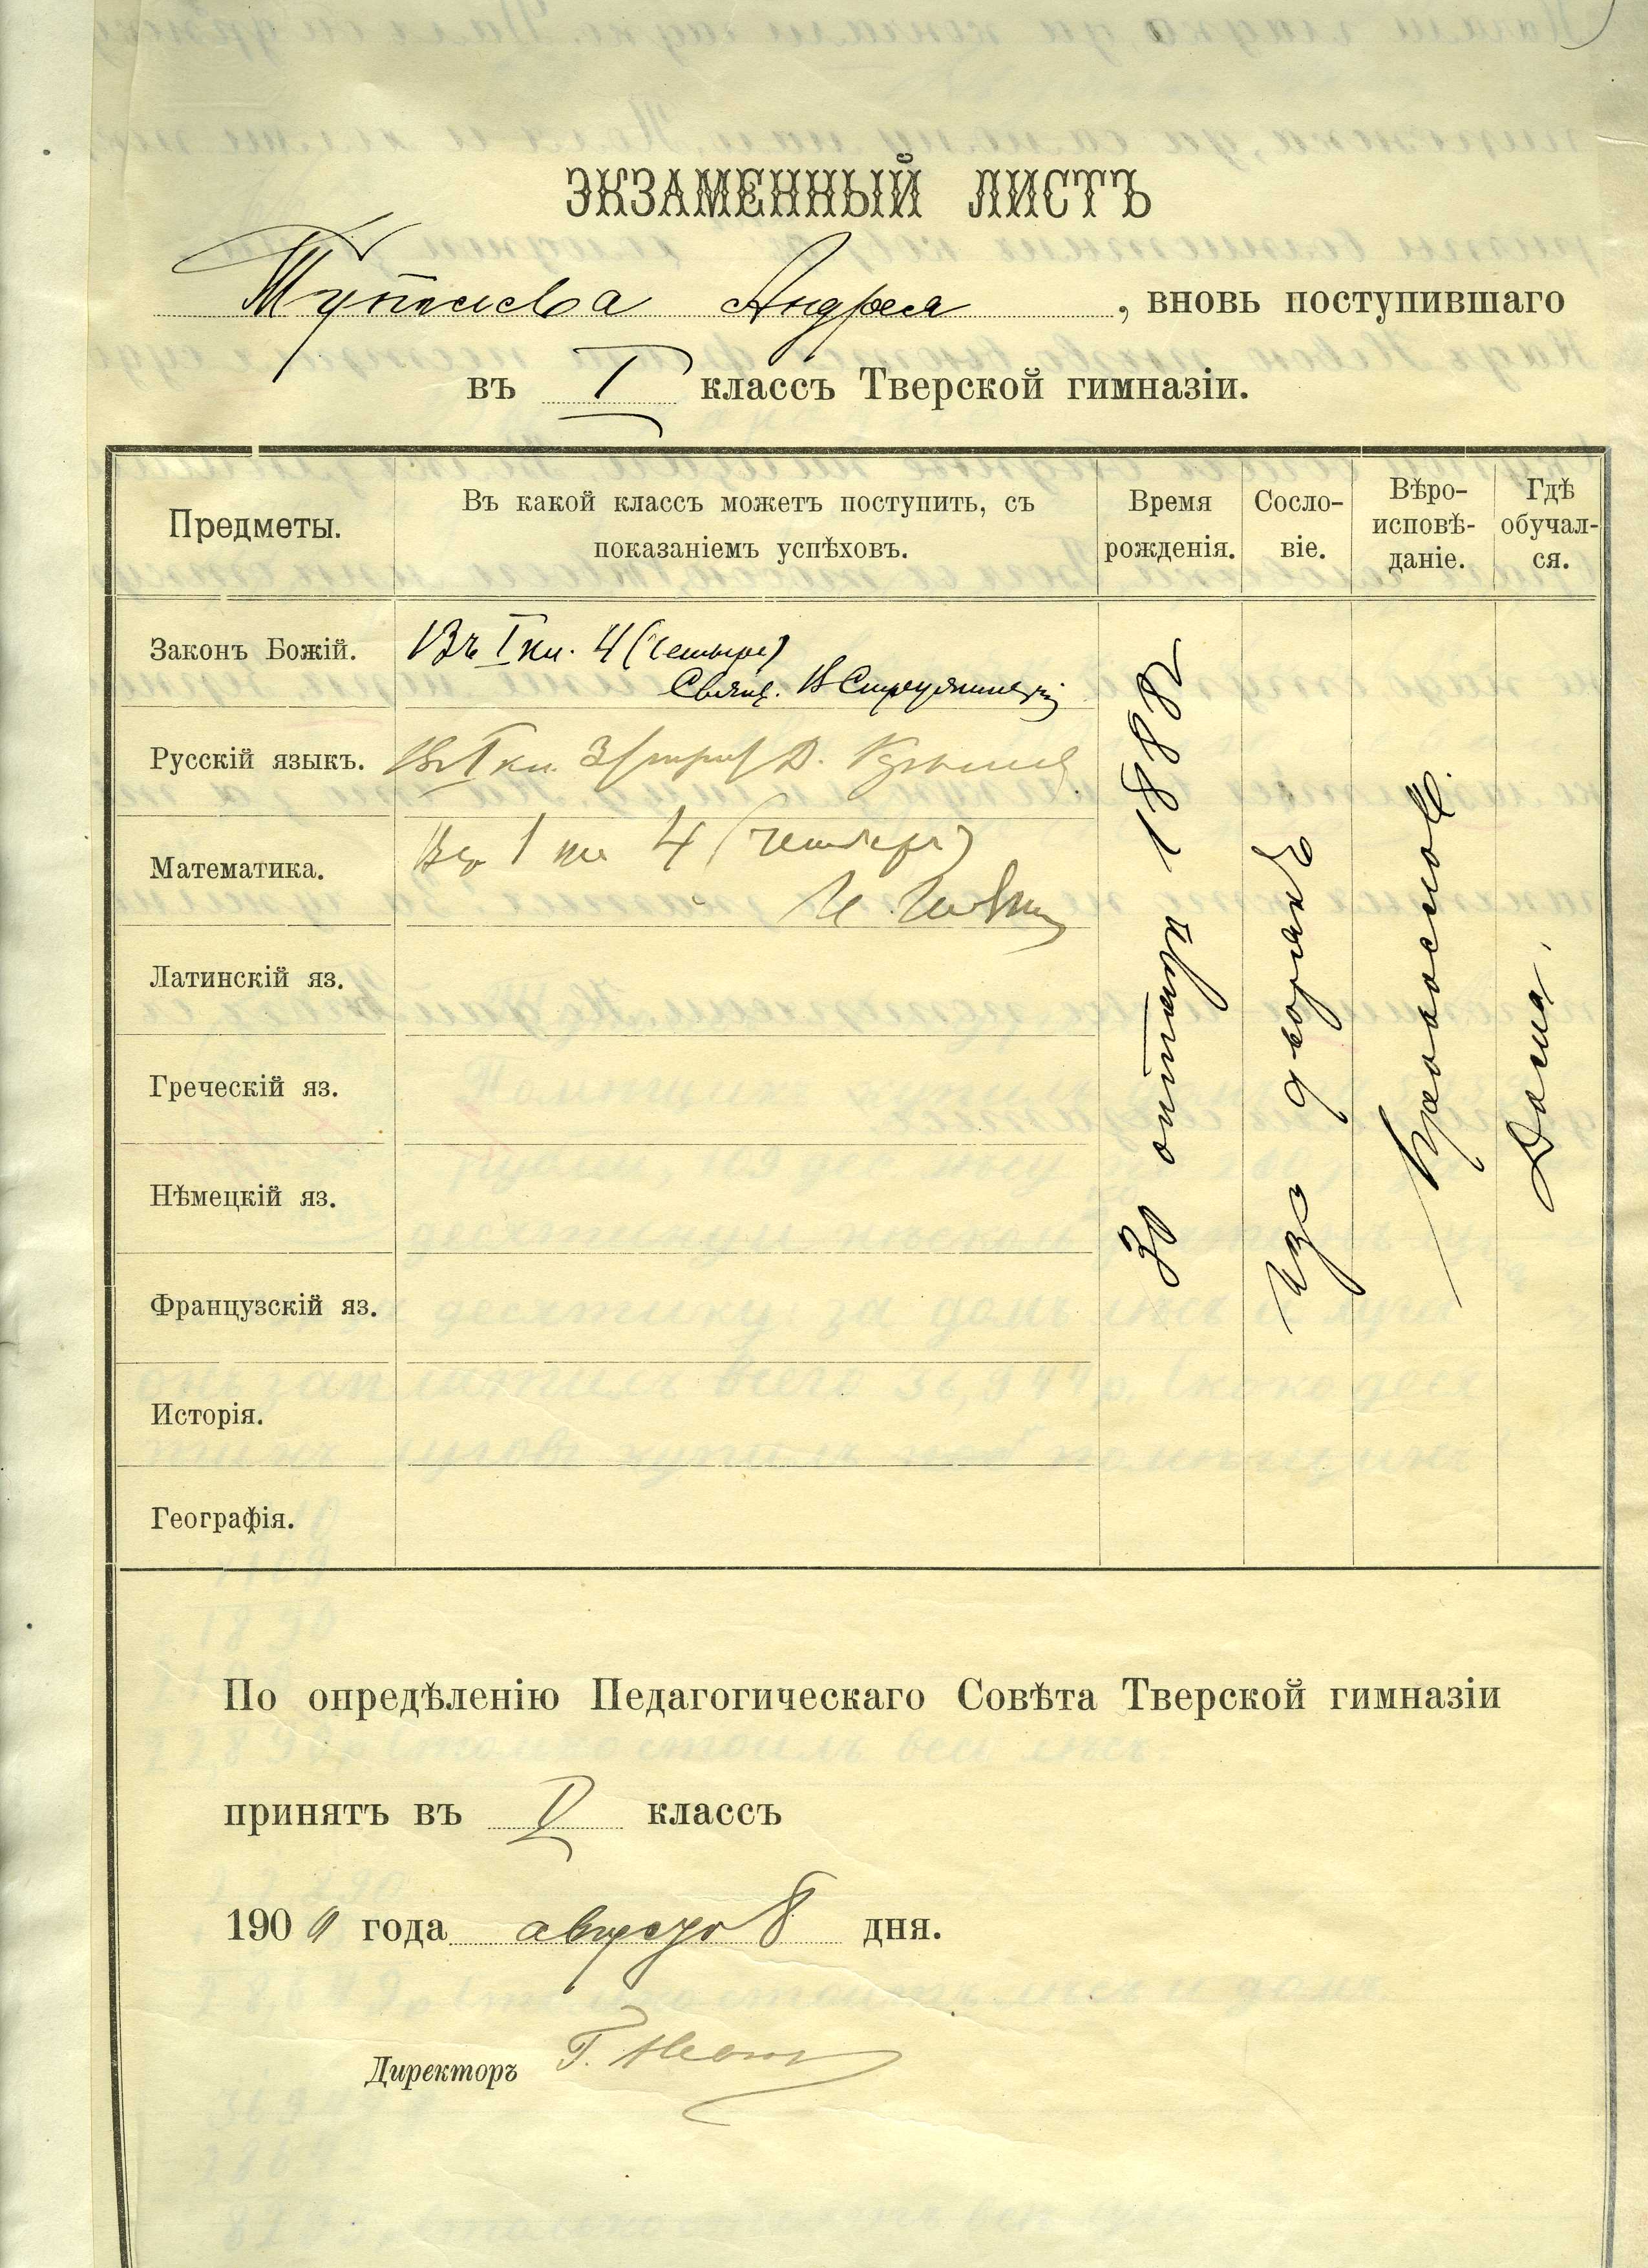 ЭКЗАМЕННЫЙ ЛИСТЪ
Туполева Андрея, вновь поступившаго
въ I классъ Тверской гимназіи.
Предметы.
Въ какой классъ можетъ поступить, съ
показаніемъ успѣховъ.
Время
рожденія.
Сосло-
віе.
Вѣро-
исповѣ-
даніе.
Гдѣ
обучал-
ся.
Законъ Божій.
Въ I кл. 4 (четыре)
Свящ. В
Русскій языкъ.
Въ I кл. 3 (три) Д.
Математика.
Въ 1 кл 4 (четыре)
И.
Латинскій яз.
Греческій яз.
Нѣмецкій яз.
Французскій яз.
Исторія.
Географія.
30 октября 1888 г
изъ дворянъ
Православн.
Дома.
По опредѣленію Педагогическаго Совѣта Тверской гимназіи
принятъ въ I классъ
190 года августа 8 дня.
Директоръ